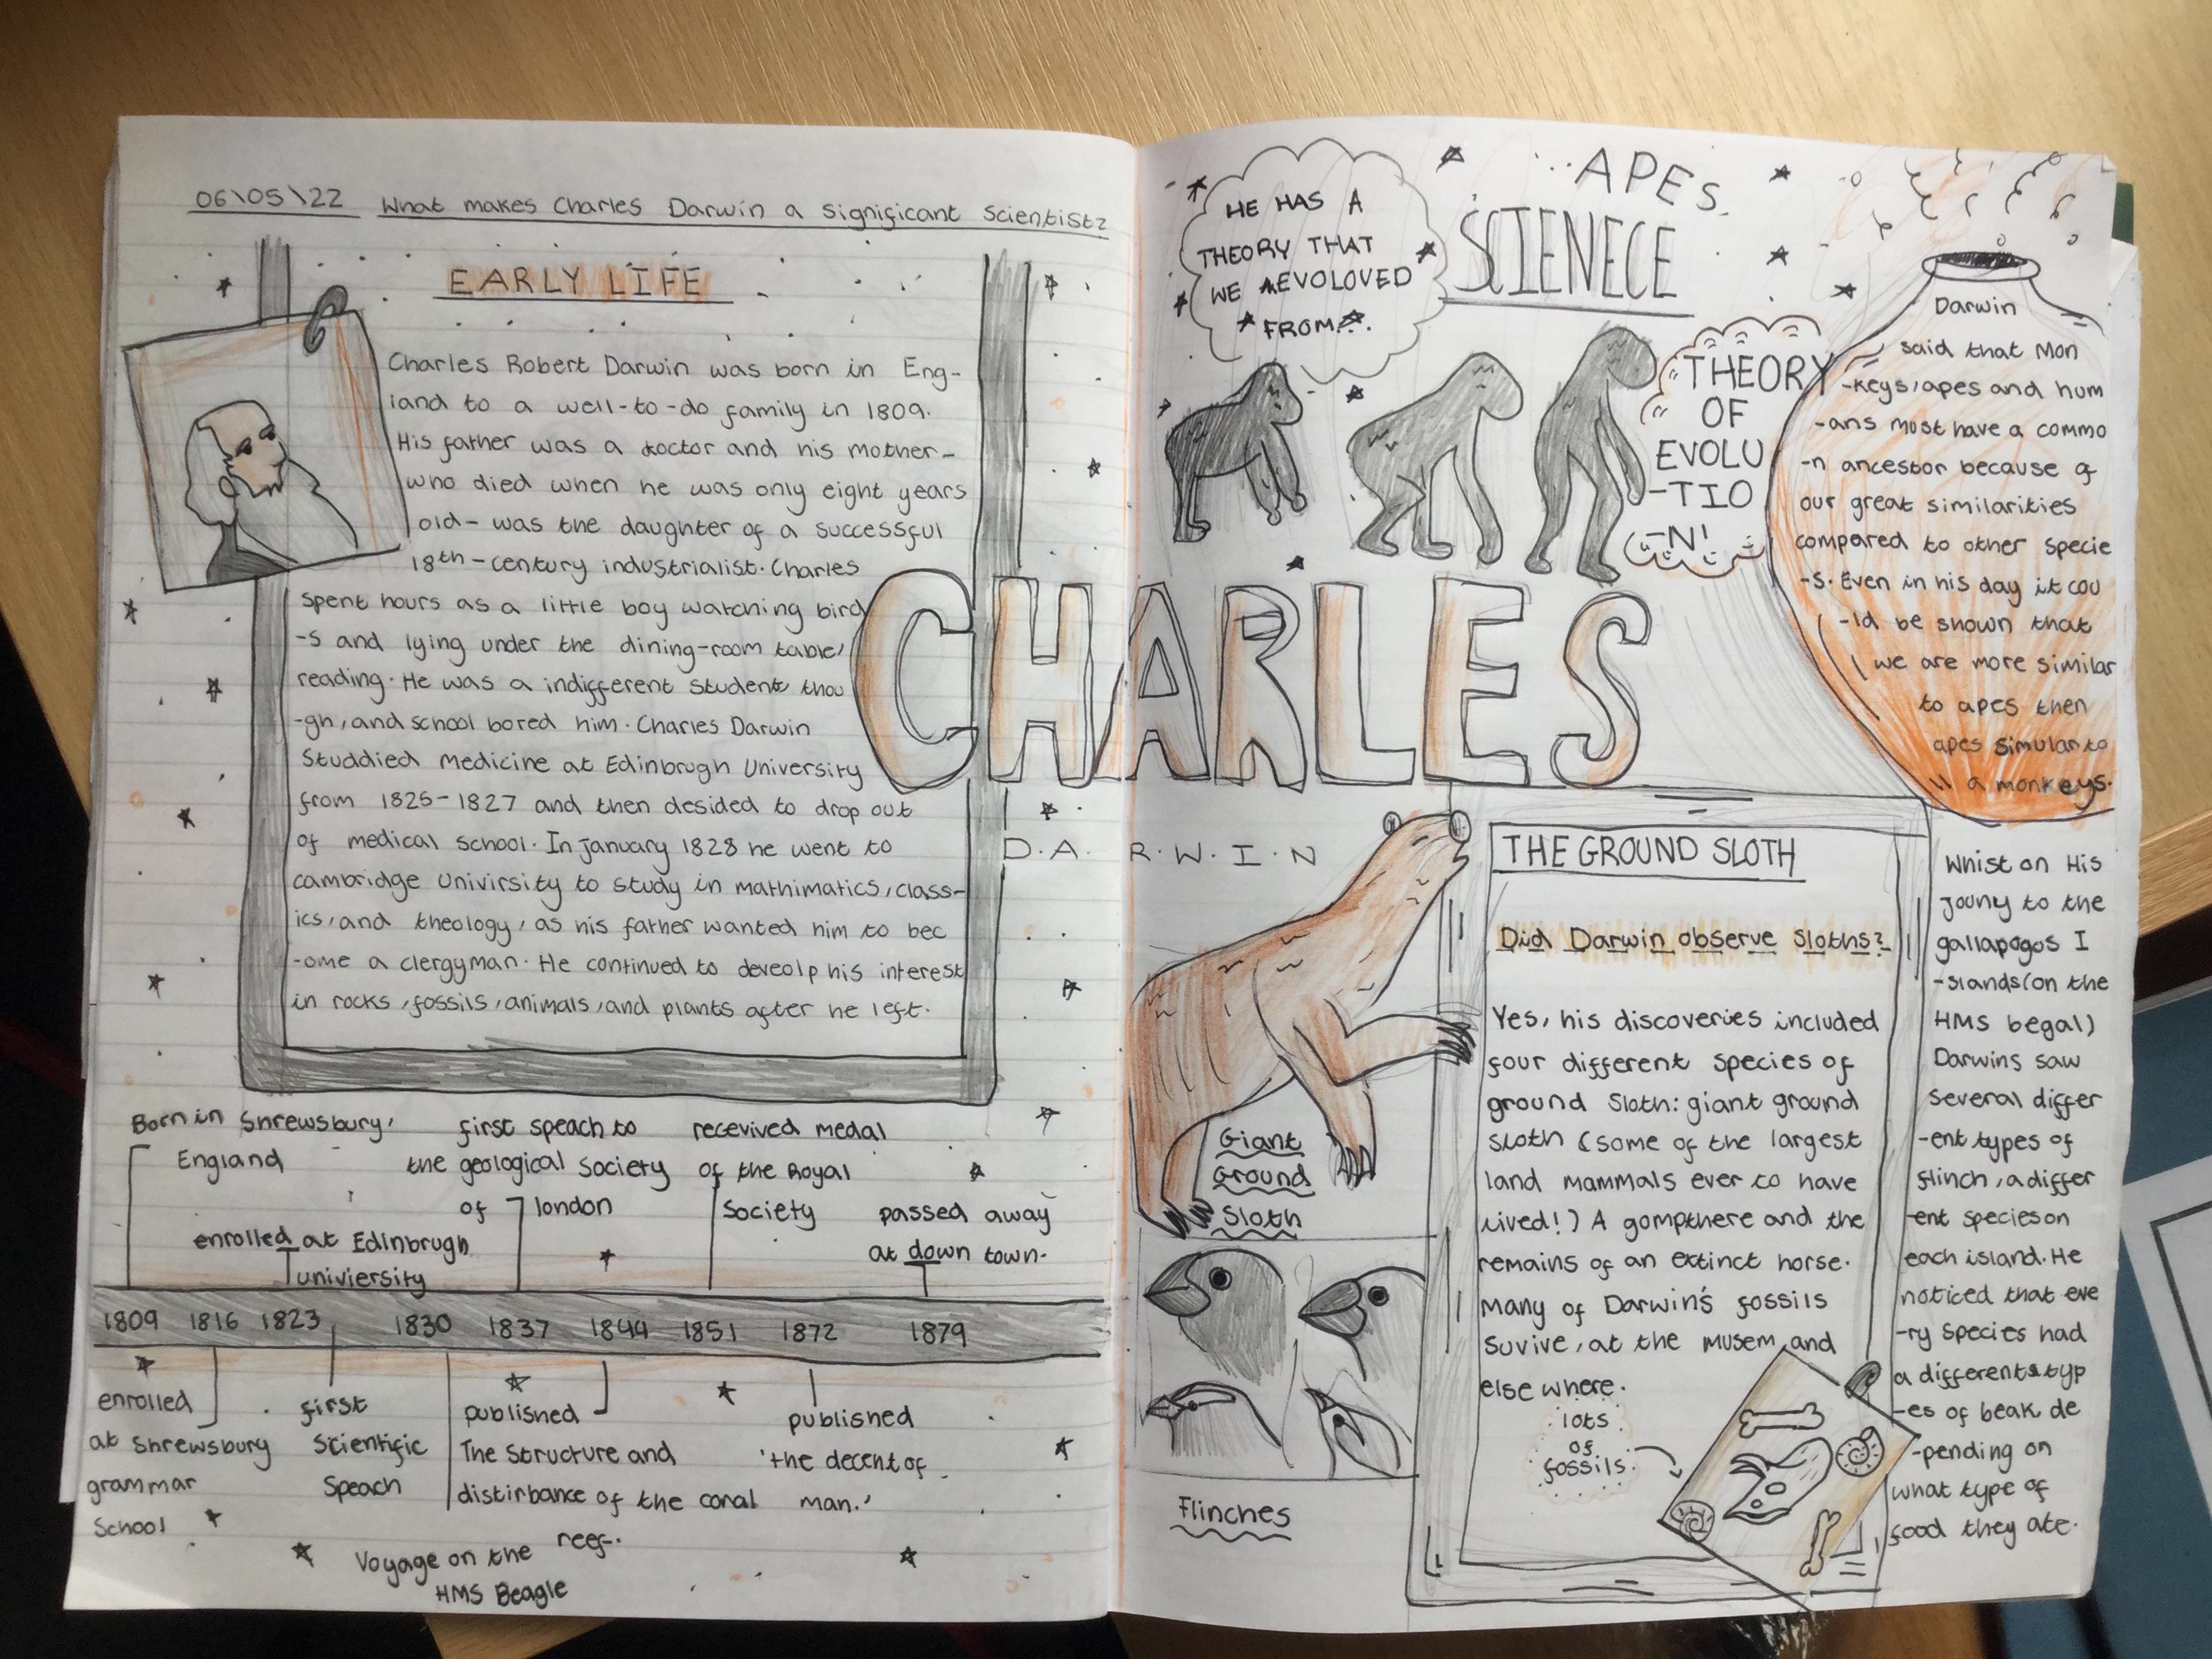 06\05\22 What makes Charles Darwin a significant scientist?
EARLY LIFE
Charles Robert Darwin was born in Eng-
land to a well-to-do family in 1809.
His father was a doctor and his mother-
who died when he was only eight years
old- was the daughter of a successful
18th-century industrialist. Charles
spent hours as a little boy watching bird
-s and lying under the dining-room table,
reading. He was a indifferent student thou
-gh, and school bored him. Charles Darwin
Studdied medicine at Edinbrugh University
from 1825-1827 and then desided to drop out
of medical school. In january 1828 he went to
cambridge Univirsity to study in mathimatics, class-
ics, and theology, as his father wanted him to bec
-ome a clergyman. He continued to deveolp his interest
in rocks, fossils, animals, and plants after he left.
CHARLES
D.A.R.W.I.N
Born in Shrewsbury,
England
enrolled at Edinbrugh
univiersity
first speach to
the geological society
of london
recevived medal
of the Royal
Society
passed away
at down town.
1809 1816 1823 1830 1837 1844 1851 1872 1879
enrolled
at Shrewsbury
grammar
School
first
Scientific
Speach
Voyage on the
HMS Beagle
published
The Structure and
distirbance of the conal
reef.
published
'the decent of
man.'
HE HAS A
THEORY THAT
WE EVOLOVED
FROM
APES.
SCIENECE
THEORY
OF
EVOLU
-TIO
-N!
Darwin
said that Mon
-keys, apes and hum
-ans most have a commo
-n ancestor because of
our great similarities
compared to other specie
-s. Even in his day it cou
-ld be shown that
we are more similar
to apes then
apes simular to
a monkeys.
THE GROUND SLOTH
Did Darwin observe sloths?
Yes, his discoveries included
four different species of
ground sloth: giant ground
sloth (some of the largest
land mammals ever to have
lived!) A gompthere and the
remains of an extinct horse.
Many of Darwin's fossils
suvive, at the musem, and
else where.
lots
of
fossils.
Giant
Ground
Sloth
Flinches
Whist on His
jouny to the
gallapogos I
-slands (on the
HMS begal)
Darwins saw
several differ
-ent types of
flinch, a differ
-ent species on
each island. He
noticed that eve
-ry species had
a differents typ
-es of beak de
-pending on
what type of
food they ate.